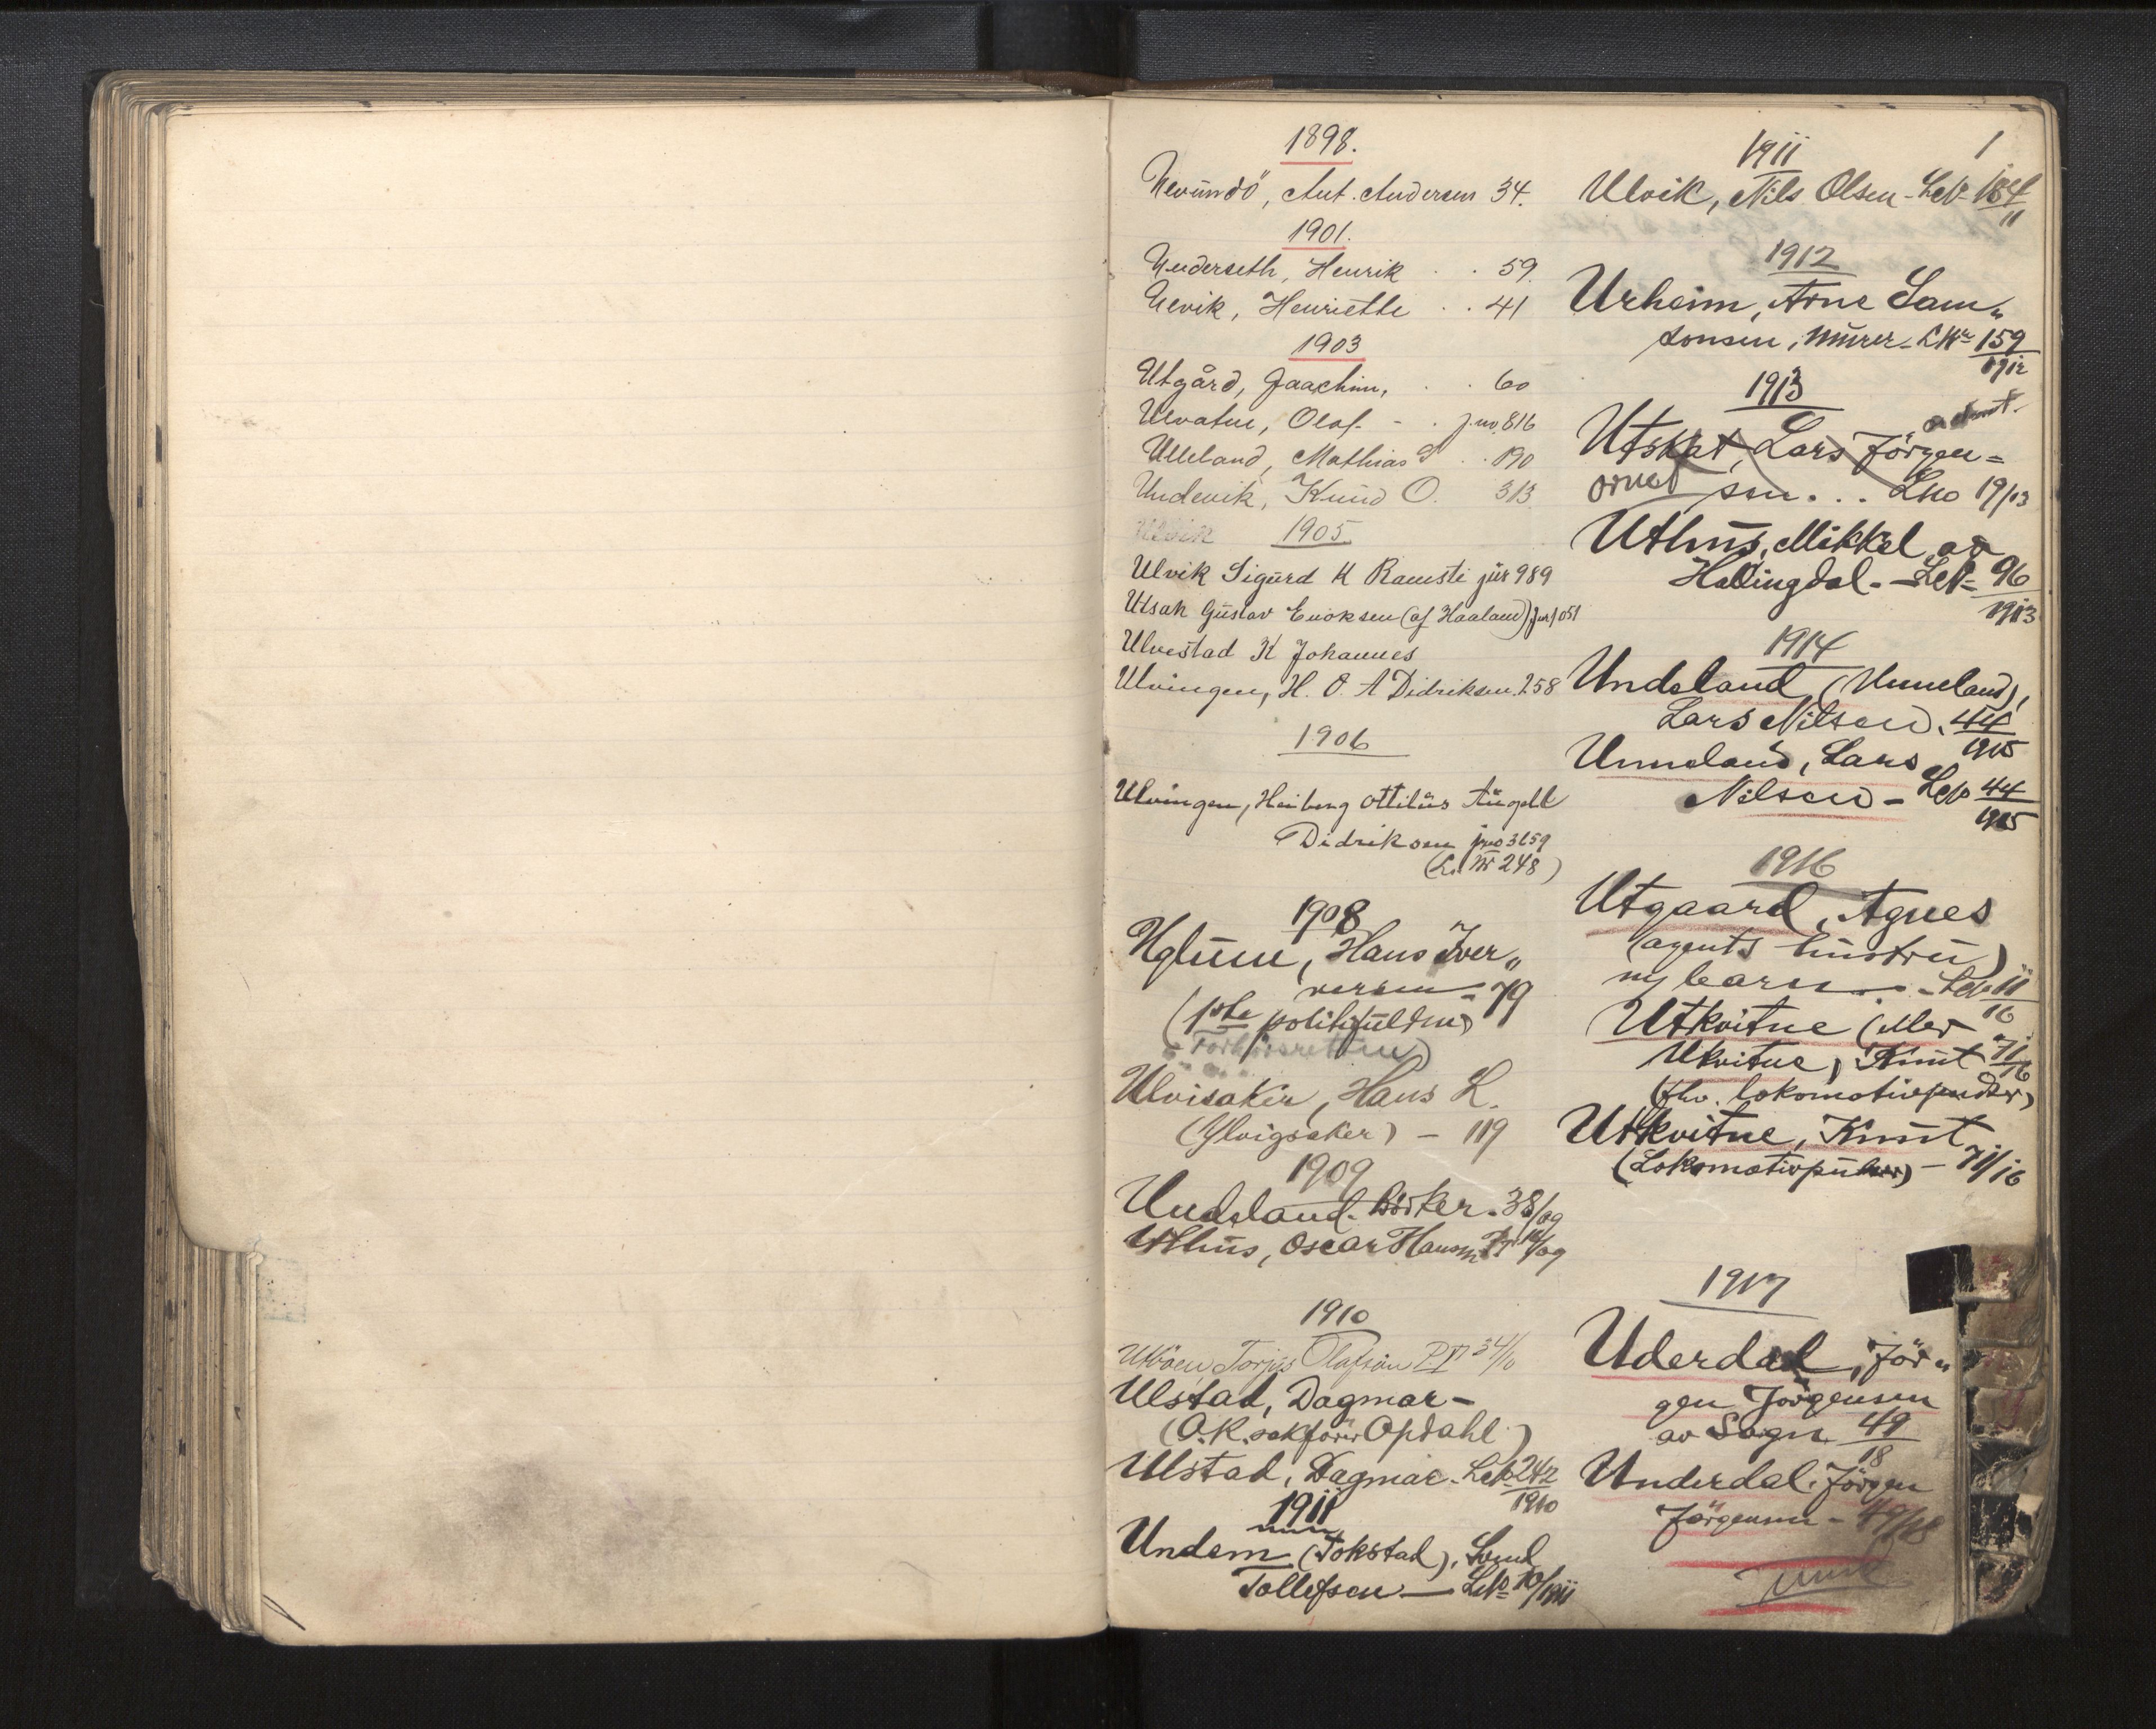 1898.
Ant. Andersen 34.
1901.
Underseth, Henrik . . 59.
Ulvik, Henriette . . 41
1903
Utgård, Joachim, . . 60
Ulvatne, Olaf. - . j.no. 816
Ulleland, Mathias . . 190
Undevik, Knud O. 313
Ulvik 1905.
Ulvik Sigurd K Ramsti jür 989
Utsah Gustav Enoksen (af Haaland) Jnr 1051
Ulvestad K Johannes
Ulvingen, H. O. A Didriksen. 258
1906
Ulvingen, Heiberg Ottilius
Didriksen jno 3259
(L. Nr 248)
1908
Uglum, Hans Iver„
versen - 79
(1ste politifuldm)
Forhørsretten)
Ulvisaker, Hans L.
(Ylvigsaker) - 119
1909
Undeland. Börker. 38/09
Uthus, Oscar Hansen 14/09
1910
Torjus Olafson 34/10
Ulstad, Dagmar -
(O.R. sakförer Opdahl)
Ulstad, Dagmar. LNo 242
1910
1911
Undem (Tokstad), Svend
Tollefsen - LNo 10/1911
1
1911
Ulvik, Nils Olsen - LNo 184
11
1912
Urheim, Arne Sam„
sonsen, murer - LNr 159
1912
1913
Utskot, Lars Jörgen=
sen . . . LNo 19/13
Uthus, Mikkel av
Hallingdal. - LNo 96
1913
1914
Undeland (Unneland),
Lars Nilsen. 44
1915
Unneland, Lars
Nilsen - LNo 44
1915
1916
Utgaard, Agnes
(agents hustru)
- LNo 11
16
Utkvitne (eller
Ukvitne), Knut 71
16
(fhv. lokomotivpudser)
Utkvitne, Knut
(Lokomotivpudser) - 71/16
1917
Uderdal, Jör„
gen Jörgensen
av Sogn. 49
18
Underdal. Jörgen
Jörgensen - 49/18